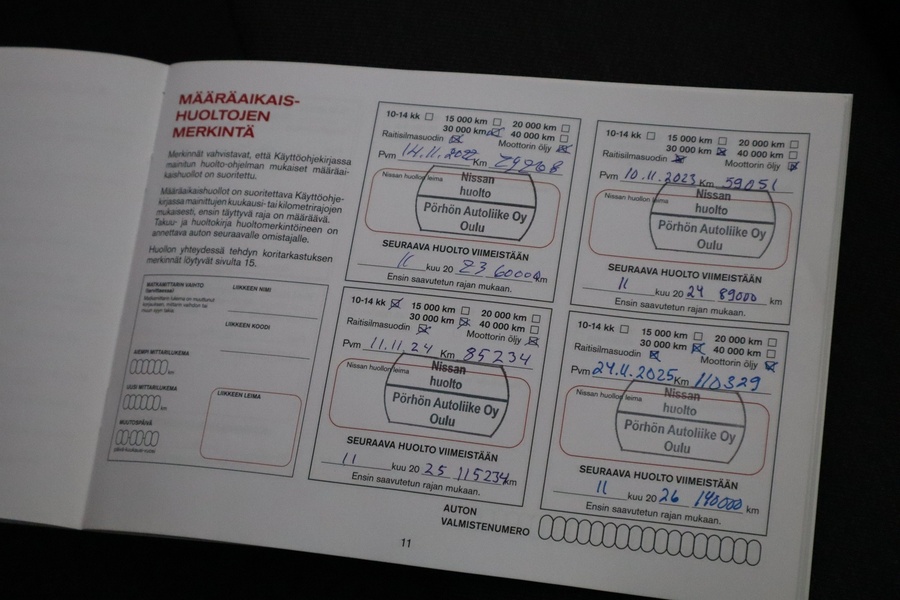 MÄÄRÄAIKAIS-
HUOLTOJEN
MERKINTÄ
Merkinnät vahvistavat, että Käyttöohjekirjassa
mainitun huolto-ohjelman mukaiset määräai-
kaishuollot on suoritettu.
Määräaikaishuollot on suoritettava Käyttöohje-
kirjassa mainittujen kuukausi- tai kilometrirajojen
mukaisesti, ensin täyttyvä raja on määräävä.
Takuu- ja huoltokirja huoltomerkintöineen on
annettava auton seuraavalle omistajalle.
Huollon yhteydessä tehdyn koritarkastuksen
merkinnät löytyvät sivulta 15.
MATKAMITTARIN VAIHTO
(tarvittaessa)
LIIKKEEN NIMI
LIIKKEEN KOODI
AIEMPI MITTARILUKEMA
km
UUSI MITTARILUKEMA
km
MUUTOSPÄIVÄ
LIIKKEEN LEIMA
10-14 kk 15 000 km 20 000 km
30 000 km 40 000 km
Raitisilmasuodin Moottorin öljy
Pvm 14.11.2022 Km 29268
Nissan huollon leima
Nissan
huolto
Pörhön Autoliike Oy
Oulu
SEURAAVA HUOLTO VIIMEISTÄÄN
11 kuu 20 23 60000 km
Ensin saavutetun rajan mukaan.
10-14 kk 15 000 km 20 000 km
30 000 km 40 000 km
Raitisilmasuodin Moottorin öljy
Pvm 10.11.2023 Km 59051
Nissan huollon leima
Nissan
huolto
Pörhön Autoliike Oy
Oulu
SEURAAVA HUOLTO VIIMEISTÄÄN
11 kuu 20 24 89000 km
Ensin saavutetun rajan mukaan.
10-14 kk 15 000 km 20 000 km
30 000 km 40 000 km
Raitisilmasuodin Moottorin öljy
Pvm 11.11.24 Km 85234
Nissan huollon leima
Nissan
huolto
Pörhön Autoliike Oy
Oulu
SEURAAVA HUOLTO VIIMEISTÄÄN
11 kuu 20 25 115234 km
Ensin saavutetun rajan mukaan.
10-14 kk 15 000 km 20 000 km
30 000 km 40 000 km
Raitisilmasuodin Moottorin öljy
Pvm 24.11.2025 Km 110329
Nissan huollon leima
Nissan
huolto
Pörhön Autoliike Oy
Oulu
SEURAAVA HUOLTO VIIMEISTÄÄN
11 kuu 20 26 140000 km
Ensin saavutetun rajan mukaan.
AUTON
VALMISTENUMERO
11